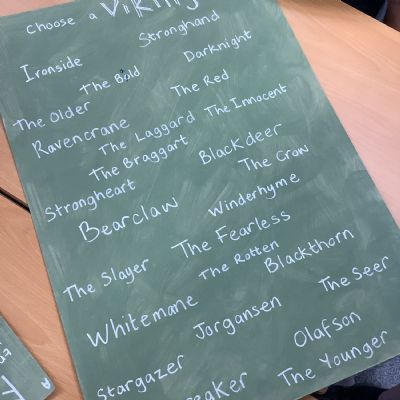 Choose a Viking
Stronghand
Darknight
Ironside
The Bold
The Red
The Older
The Innocent
Ravencrane
The Laggard
The Braggart
Blackdeer
The Crow
Strongheart
Bearclaw
Winderhyme
The Fearless
The Rotten
Blackthorn
The Slayer
The Seer
Whitemane
Jorgansen
Olafson
Stargazer
The Younger